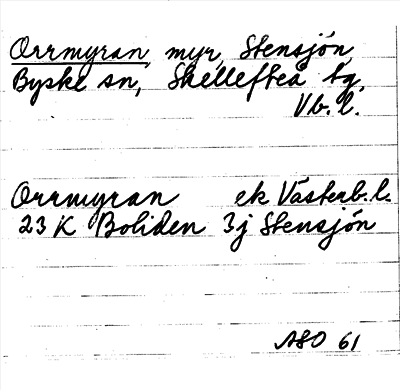 Orrmyran, myr, Stensjön
Byske sn, Skellefteå tg,
Vb. l.
Orrmyran ek Västerb. l.
23 K Boliden 3j Stensjön
ASO 61